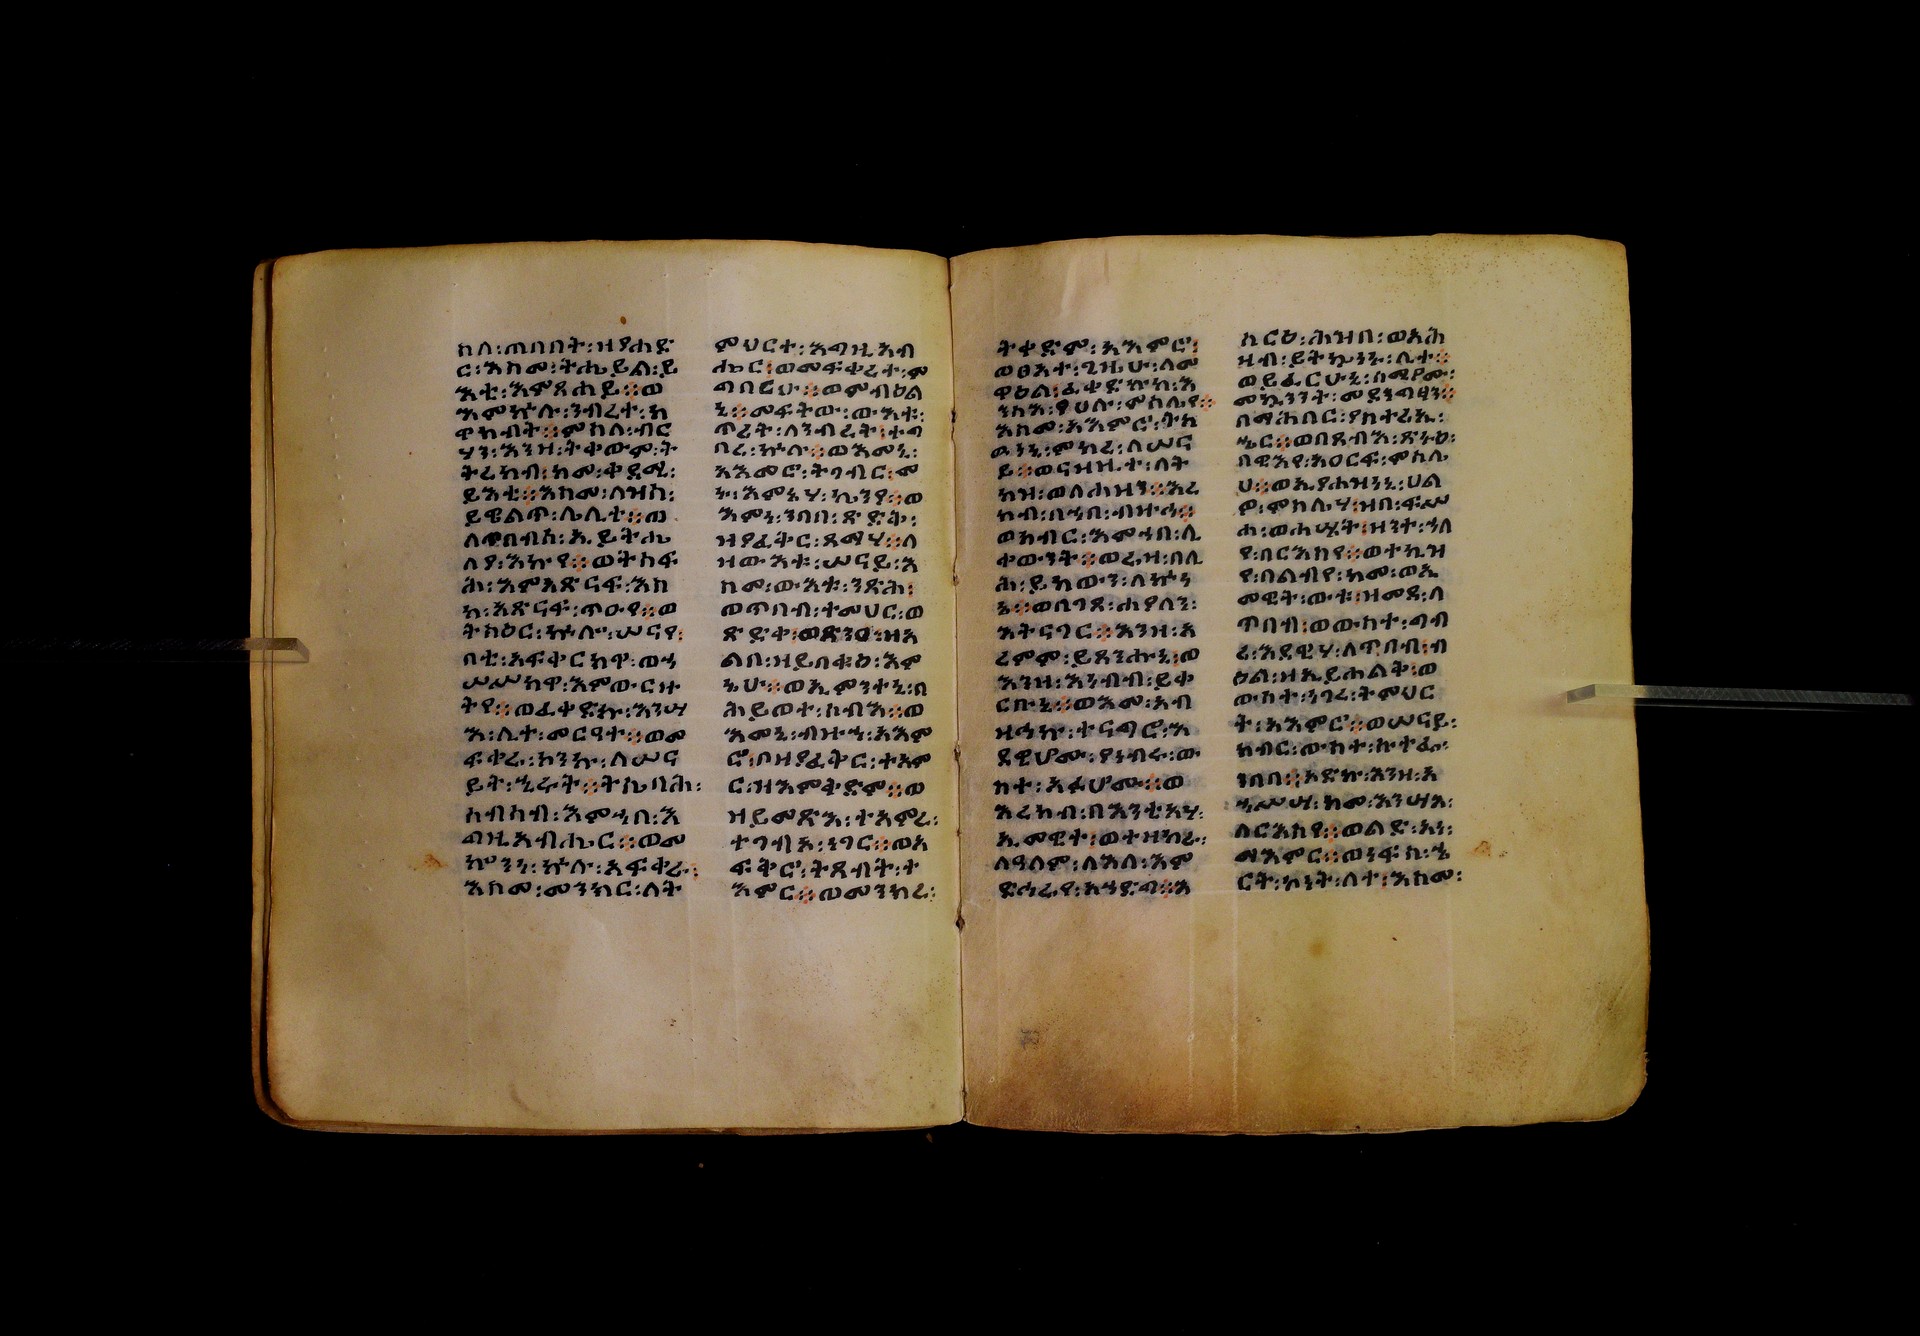 ከለ፡ጠበበት፡ዘያሐድ
ር፡እስመ፡ትሔይል፡ይ
እቲ፡እምጸሐይ።ወ
እምኵሉ፡ንብረተ፡ከ
ዋክብት።ምስለ፡ብር
ሃን፡እንዘ፡ትቀውም፡ት
ትረከብ፡ከመ፡ቀደሚ፡
ይእቲ።እስመ፡ለዝከ፡
ይዌልጥ፡ሌሊተ።ወ
ለጥበብሰ፡ኢይትሔ
ለያ፡እኩየ።ወትሰፍ
ሕ፡እምአጽናፍ፡እስ
ከ፡አጽናፍ፡ጥዑየ።ወ
ትሠዕር፡ኵሎ፡ሠናየ፡
በቲ፡አፍቀርክዋ፡ወኀ
ሠሥክዋ፡እምውርዙ
ትየ።ወፈቀድኩ፡እንሣ
እ፡ሊተ፡መርዓተ።ወመ
ፍቀሬ፡ኮንኩ፡ለሠና
ይት፡ኂሩት።ትኬብሕ፡
ስብከብ፡እምኀበ፡እ
ግዚአብሔር።ወመ
ኰንነ፡ኵሉ፡አፍቀራ፡
እስመ፡መንክር፡ለት
ምህርተ፡እግዚአብ
ሔር፡ወመፍቀሪተ፡ም
ግባሪሁ።ወምብዕል
ኒ።መፍትው፡ውእቱ፡
ጥሪት፡ለንብረት፡ተግ
በረ፡ኵሎ።ወእመኒ፡
አእመሮ፡ትገብር፡መ
ኑ፡እምኔሃ፡ኬንያ።ወ
እምነ፡ንበበ፡ጽድቅ፡
ዘያፈቅር፡ጻማሃ።ለ
ዘውእቱ፡ሠናይ፡እ
ስመ፡ውእቱ፡ንጽሕ፡
ወጥበብ፡ተመህር፡ወ
ጽድቀ፡ወጽንዐ፡ዘአ
ልቦ፡ዘይበቍዕ፡እም
ኔሁ።ወኢምንተኒ፡በ
ሕይወተ፡ሰብእ።ወ
እመኒ፡ብዙኀ፡አእም
ሮ፡ቦዘያፈቅር፡ተአም
ር፡ዘእምቅድም።ወ
ዘይመጽእ፡ተአምረ፡
ተገብአ፡ነገር።ወአ
ፍቅሮ፡ትጸብት፡ተ
እምር።ወመንክረ፡
ትቀድም፡አእምሮ፡
ወፀአተ፡ጊዜሁ፡ለመ
ዋዕል፡ፈቀድኩኬ፡እ
ንከ፡የሀሉ፡ምስሌየ።
እስመ፡አእምሮ፡ትከ
ውነኒ፡ምክረ፡ለሠና
ይ።ወናዘዚተ፡ለት
ከዝ፡ወለሐዘን።እረ
ክብ፡በኀበ፡ብዙኃ።
ወክብር፡እምኀበ፡ሊ
ቀውንት።ወሬዛ፡በሊ
ሕ፡ይከውን፡ለኵነ
ኔ።ወበገጸ፡ሐያለን፡
አትናገር።እንዘ፡አ
ረምም፡ይጸንሑኒ፡ወ
እንዘ፡እነብብ፡ይቀ
ርቡኒ።ወእመ፡አብ
ዛኅኩ፡ተናግሮ፡እ
ደዊሆሙ፡ያነብሩ፡ው
ስተ፡አፉሆሙ።ወ
እረክብ፡በእንቲአሃ፡
ኢመዊተ፡ወተዘከረ፡
ለዓለም፡ለእለ፡እም
ድኅሬየ፡አኀድግ።እ
ሰርዕ፡ሕዝበ፡ወአሕ
ዛብ፡ይትኴነኑ፡ሊተ።
ወይፈርሁኒ፡ሰሚዖሙ፡
መኳንንት፡መደንግፃን።
በማሕበር፡ያስተሬኢ፡
ኄር።ወበጸብእ፡ጽኑዕ፡
በዊእየ፡አዐርፍ፡ምስሌ
ሀ።ወኢያሐዝነኒ፡ሀል
ዎ፡ምስሌሃ፡ዝቡ፡ፍሥ
ሐ፡ወሐሤት፡ዘንተ፡ኀለ
የ፡በርእስየ።ወተከዝ
የ፡በልብየ፡ከመ፡ወኢ
መዊት፡ውቱ፡ዘመደ፡ለ
ጥበብ፡ወውስተ፡ግብ
ረ፡እደዊሃ፡ለጥበብ፡ብ
ዕል፡ዘኢይሐልቅ፡ወ
ውስተ፡ነገረ፡ትምህር
ት፡አእምሮ።ወሠናይ፡
ክብር፡ውስተ፡ሱተፌ፡
ንበባ።አድኩ፡እንዘ፡አ
ኀሥሣ፡ከመ፡እንሣእ፡
ለርእስየ።ወልድ፡አነ፡
ማእምር።ወነፍስ፡ኄ
ርት፡ኮነት፡ለተ፡እስመ፡